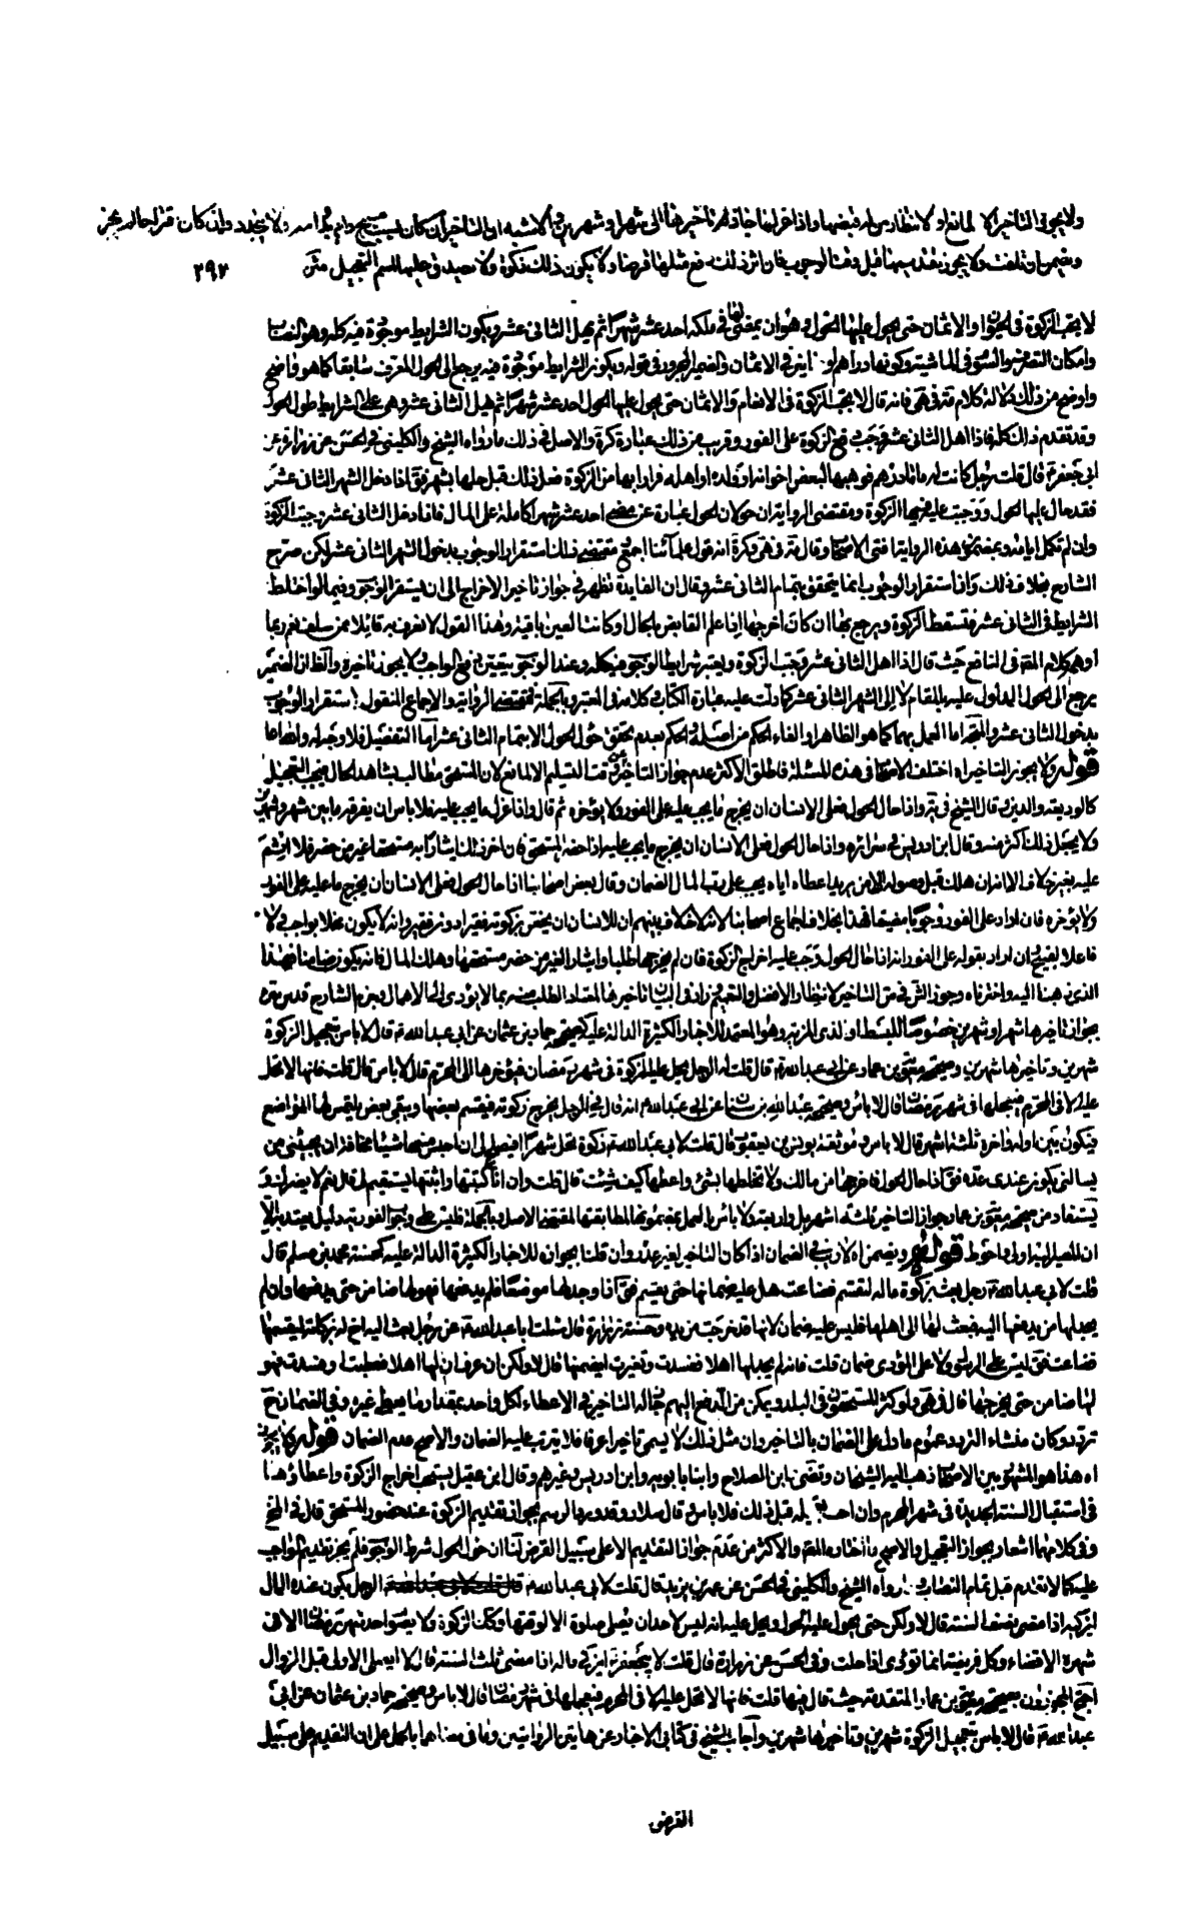 ولا يجوز التأخير الا لمانع او لانتظار من له قبضها واذا عزلها جاز له تأخيرها الى شهر او شهرين والاشبه ان التأخير ان كان لسبب مبيح دام بدوامه ولا يتحدد وان كان اقتراحا لم يجز
ويضمن ان تلفت ولا يجوز تقديمها قبل وقت الوجوب فان اثر ذلك دفع مثلها قرضا ولا يكون ذلك زكوة ولا يصدق عليها اسم التعجيل
٢٩٢
لا يجب الزكوة في الحيوان والاثمان حتى يحول عليها الحول وهو ان يمضى لها في ملكه احد عشر شهرا ثم يهل الثانى عشر ويكون الشرايط موجودة فيه كله وهو النصاب
وامكان التصرف والسوم في الماشية وكونها دراهم او في الاثمان والضمير المجرور في قوله ويكون الشرايط موجودة فيه يرجع الى الحول المعرف سابقا كما هو واضح
واوضح من ذلك دلالة كلامه في هى فانه قال لا يجب الزكوة في الانعام والاثمان حتى يحول عليها الحول احد عشر شهرا ثم يهل الثانى عشر وهى على الشرايط طول الحول
وقد تقدم ذلك كله فاذا اهل الثانى عشر وجب دفع الزكوة على الفور وقريب من ذلك عبارة كرة والاصل في ذلك ما رواه الشيخ والكلينى في الحسن عن زرارة عن
ابى جعفر ع قال قلت رجل كانت له مائتا درهم فوهبها لبعض اخوانه او ولده او اهله فرارا بها من الزكوة فعل ذلك قبل حلها بشهر فق اذا دخل الشهر الثانى عشر
فقد حال عليها الحول ووجبت عليه فيها الزكوة ومقتضى الرواية ان حولان الحول عبارة عن مضى احد عشر شهرا كاملة على المال فاذا دخل الثانى عشر وجبت الزكوة
وان لم تكمل ايامه وبمضمون هذه الرواية افتى الاصحاب وقال مه في هى وكرة انه قول علمائنا اجمع ومقتضى ذلك استقرار الوجوب بدخول الشهر الثانى عشر لكن صرح
الشارح بخلاف ذلك وان استقرار الوجوب انما يتحقق بتمام الثانى عشر وقال ان الفايدة تظهر في جواز تأخير الاخراج الى ان يستقر الوجوب وفيما لو اختلت
الشرايط في الثانى عشر فتسقط الزكوة ويرجع بها ان كان اخرجها اذا علم القابض بالحال او كانت العين باقية وهذا القول لا نعرف به قائلا ممن سلف نعم ربما
اوهم كلام المصنف في النافع حيث قال اذا اهل الثانى عشر وجبت الزكوة ويعتبر شرايط الوجوب فيه كله وعند الوجوب يتعين دفع الواجب ولا يجوز تأخيره والظ ان الضمير
يرجع الى الحول المدلول عليه بالمقام لا الى الشهر الثانى عشر كما دلت عليه عبارة الكتاب وكلامه في المعتبر وبالجملة فمقتضى الرواية والاجماع المنقول استقرار الوجوب
بدخول الثانى عشر والمتجه اما العمل بهما كما هو الظاهر او الغاء الحكم من اصله والحكم بعدم تحقق حول الحول الا بتمام الثانى عشر اما التفصيل فلا وجه له والله اعلم
قوله ولا يجوز التأخير اه اختلف الاصحاب في هذه المسئلة فاطلق الاكثر عدم جواز التأخير عن وقت التسليم الا لمانع لان المستحق مطالب بشاهد الحال فيجب التعجيل
كالوديعة والدين وقال الشيخ في يه واذا حال الحول فعلى الانسان ان يخرج ما يجب عليه على الفور ولا يؤخره ثم قال واذا عزل ما يجب عليه فلا باس ان يفرقه ما بين شهر وشهرين
ولا يجعل ذلك اكثر منه وقال ابن ادريس في سرائره واذا حال الحول فعلى الانسان ان يخرج ما يجب عليه اذا حضر المستحق فان اخر ذلك ايثارا به مستحقا غير من حضر فلا اثم
عليه بغير خلاف الا انه ان هلك قبل وصوله الى من يريد اعطاه اياه يجب على رب المال الضمان وقال بعض اصحابنا اذا حال الحول فعلى الانسان ان يخرج ما عليه على الفور
ولا يؤخره فان اراد على الفور وجوبا مضيقا فهذا بخلاف اجماع اصحابنا لانه لا خلاف بينهم ان للانسان ان يخص بزكوته فقيرا دون فقير وانه لا يكون مخلا بواجب ولا
فاعلا لقبيح وان اراد بقوله على الفور انه اذا حال الحول وجب عليه اخراج الزكوة فان لم يخرجها طلبا او ايثار الغير من حضر مستحقها وهلك المال فانه يكون ضامنا فهذا
الذى ذهبنا اليه واخترناه وجوز الش في س التأخير لانتظار الافضل والتعميم وزاد في البيان تأخيرها لمعتاد الطلب منه بما لا يؤدى الى الاهمال وجزم الشارح قدس سره
بجواز تأخيرها شهرا وشهرين خصوصا للبسط او لذى المزية وهو المعتمد للاخبار الكثيرة الدالة عليه كصحيحة حماد بن عثمان عن ابى عبد الله ع قال لا باس بتعجيل الزكوة
شهرين وتأخيرها شهرين وصحيحة معوية بن عمار عن ابى عبد الله ع قال قلت له الرجل يحل عليه الزكوة في شهر رمضان فيؤخرها الى المحرم قال لا باس قال قلت فانها لا تحل
عليه الا في المحرم فيعجلها في شهر رمضان قال لا باس وصحيحة عبد الله بن سنان عن ابى عبد الله ع انه قال في الرجل يخرج زكوته فيقسم بعضها ويبقى بعض يلتمس لها المواضع
فيكون بين اوله واخره ثلثة اشهر قال لا باس وموثقة يونس بن يعقوب قال قلت لابى عبد الله ع زكوة تحل شهرا افيصلح لى ان احبس منها شيئا مخافة ان يجيئنى من
يسألنى يكون عندى عدة فق اذا حال الحول فاخرجها من مالك ولا تخلطها بشئ واعطها كيف شئت قال قلت وان انا كتبتها واثبتها يستقيم لى قال نعم لا يضرك و
يستفاد من صحيحة معوية بن عمار جواز التأخير ثلثة اشهر بل واربعة ولا باس بالعمل بمضمونها لمطابقتها لمقتضى الاصل وبالجملة فليس على وجوب الفورية دليل يعتد به الا
ان المصير اليه اولى واحوط قوله ويضمن اه لا ريب في الضمان اذا كان التأخير لغير عذر وان قلنا بجوازه للاخبار الكثيرة الدالة عليه كحسنة محمد بن مسلم قال
قلت لابى عبد الله ع رجل بعث بزكوة ماله لتقسم فضاعت هل عليه ضمانها حتى يقسم فق اذا وجد لها موضعا فلم يدفعها فهو لها ضامن حتى يدفعها وان لم
يجد لها من يدفعها اليه فبعث لها الى اهلها فليس عليه ضمان لانها قد خرجت من يده وحسنة زرارة قال سئلت ابا عبد الله ع عن رجل بعث اليه اخ له زكوته ليقسمها
فضاعت فق ليس على الرسول ولا على المؤدى ضمان قلت فانه لم يجد لها اهلا ففسدت وتغيرت ايضمنها قال لا ولكن ان عرف ان لها اهلا فعطبت او فسدت فهو
لها ضامن حتى يخرجها قال في هى ولو كثر المستحقون في البلد ويمكن من الدفع اليهم جاز له التأخير في الاعطاء لكل واحد بمقدار ما يعطى غيره وفى الضمان ح
تردد وكان منشاء التردد عموم ما دل على الضمان بالتأخير وان مثل ذلك لا يسمى تاخيرا عرفا فلا يترتب عليه الضمان والاصح عدم الضمان قوله ولا يجوز
اه هذا هو المشهور بين الاصحاب ذهب اليه الشيخان وتضى وابو الصلاح وابنا بابويه وابن ادريس وغيرهم وقال ابن عقيل يستحب اخراج الزكوة واعطاؤها
في استقبال السنة الجديدة في شهر المحرم وان احب تعجيله قبل ذلك فلا باس وقال سلار وقد ورد الرسم بجواز تقديم الزكوة عند حضور المستحق قال في المخ
وفى كلامهما اشعار بجواز التعجيل والاصح ما اختاره المصنف والاكثر من عدم جواز التقديم الا على سبيل القرض لنا ان حول الحول شرط الوجوب فلم يجز تقديم الواجب
عليه كما لا تقدم قبل تمام النصاب وما رواه الشيخ والكلينى في الحسن عن عمر بن يزيد قال قلت لابى عبد الله ع الرجل يكون عنده المال
ايزكيه اذا مضى نصف السنة قال لا ولكن حتى يحول عليه الحول ويحل عليه انه ليس لاحد ان يصلى صلوة الا لوقتها وكذلك الزكوة ولا يصوم احد شهر رمضان الا في
شهره الا قضاء وكل فريضة انما تؤدى اذا حلت وفى الحسن عن زرارة قال قلت لابى جعفر ع ايزكى الرجل ماله اذا مضى ثلث السنة قال لا ايصلى الاولى قبل الزوال
احتج المجوزون بصحيحة معوية بن عمار المتقدمة حيث قال فيها قلت فانها لا تحل عليه الا في المحرم فيعجلها في شهر رمضان قال لا باس وصحيحة حماد بن عثمان عن ابى
عبد الله ع قال لا باس بتعجيل الزكوة شهرين وتأخيرها شهرين واجاب الشيخ في كتابى الاخبار عن هاتين الروايتين وما في معناهما بالحمل على ان التقديم على سبيل
القرض